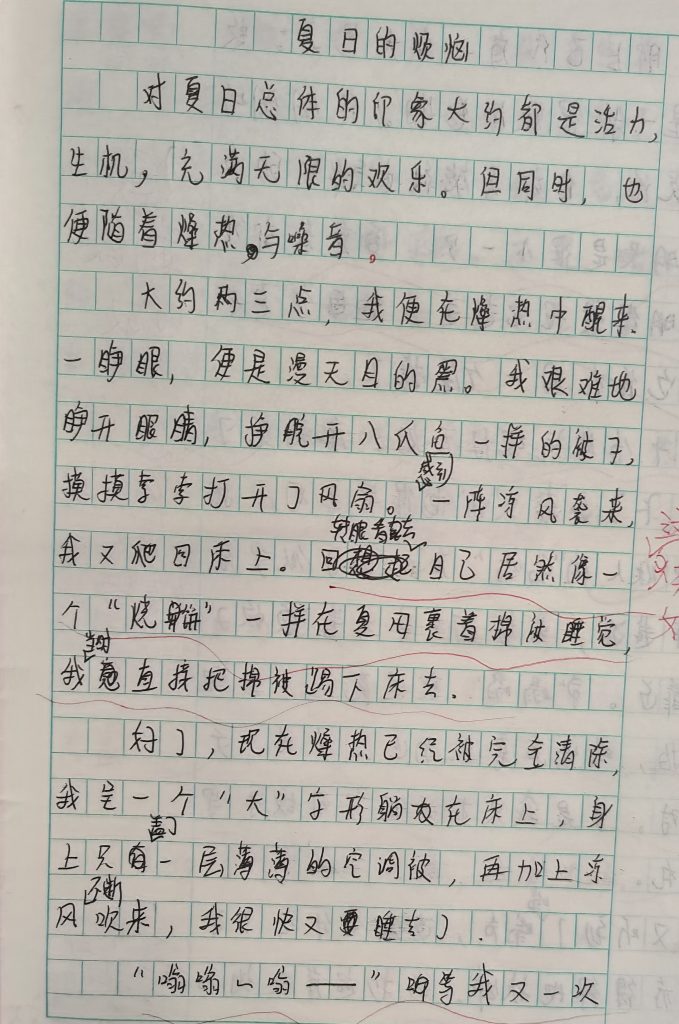 夏日的烦恼
对夏日总体的印象大约都是活力,
生机，充满无限的欢乐。但同时，也
便随着燥热,与噪音。
大约两三点，我便在燥热中醒来.
一睁眼，便是漫天目的黑。我艰难地
睁开眼睛，挣脱开八爪鱼一样的被子,
摸摸索索打开了风扇。感到一阵凉风袭来,
我又爬回床上。回转眼看去自己居然像一
个“烧餅”一样在夏日裹着棉被睡觉,
我当时竟直接把棉被踢下床去.
好了，现在燥热已经被完全清除,
我呈一个“大”字形躺在床上，身
上只盖了一层薄薄的空调被，再加上凉
风不断吹来，我很快又要睡去了.
“嗡嗡～嗡——”当等我又一次